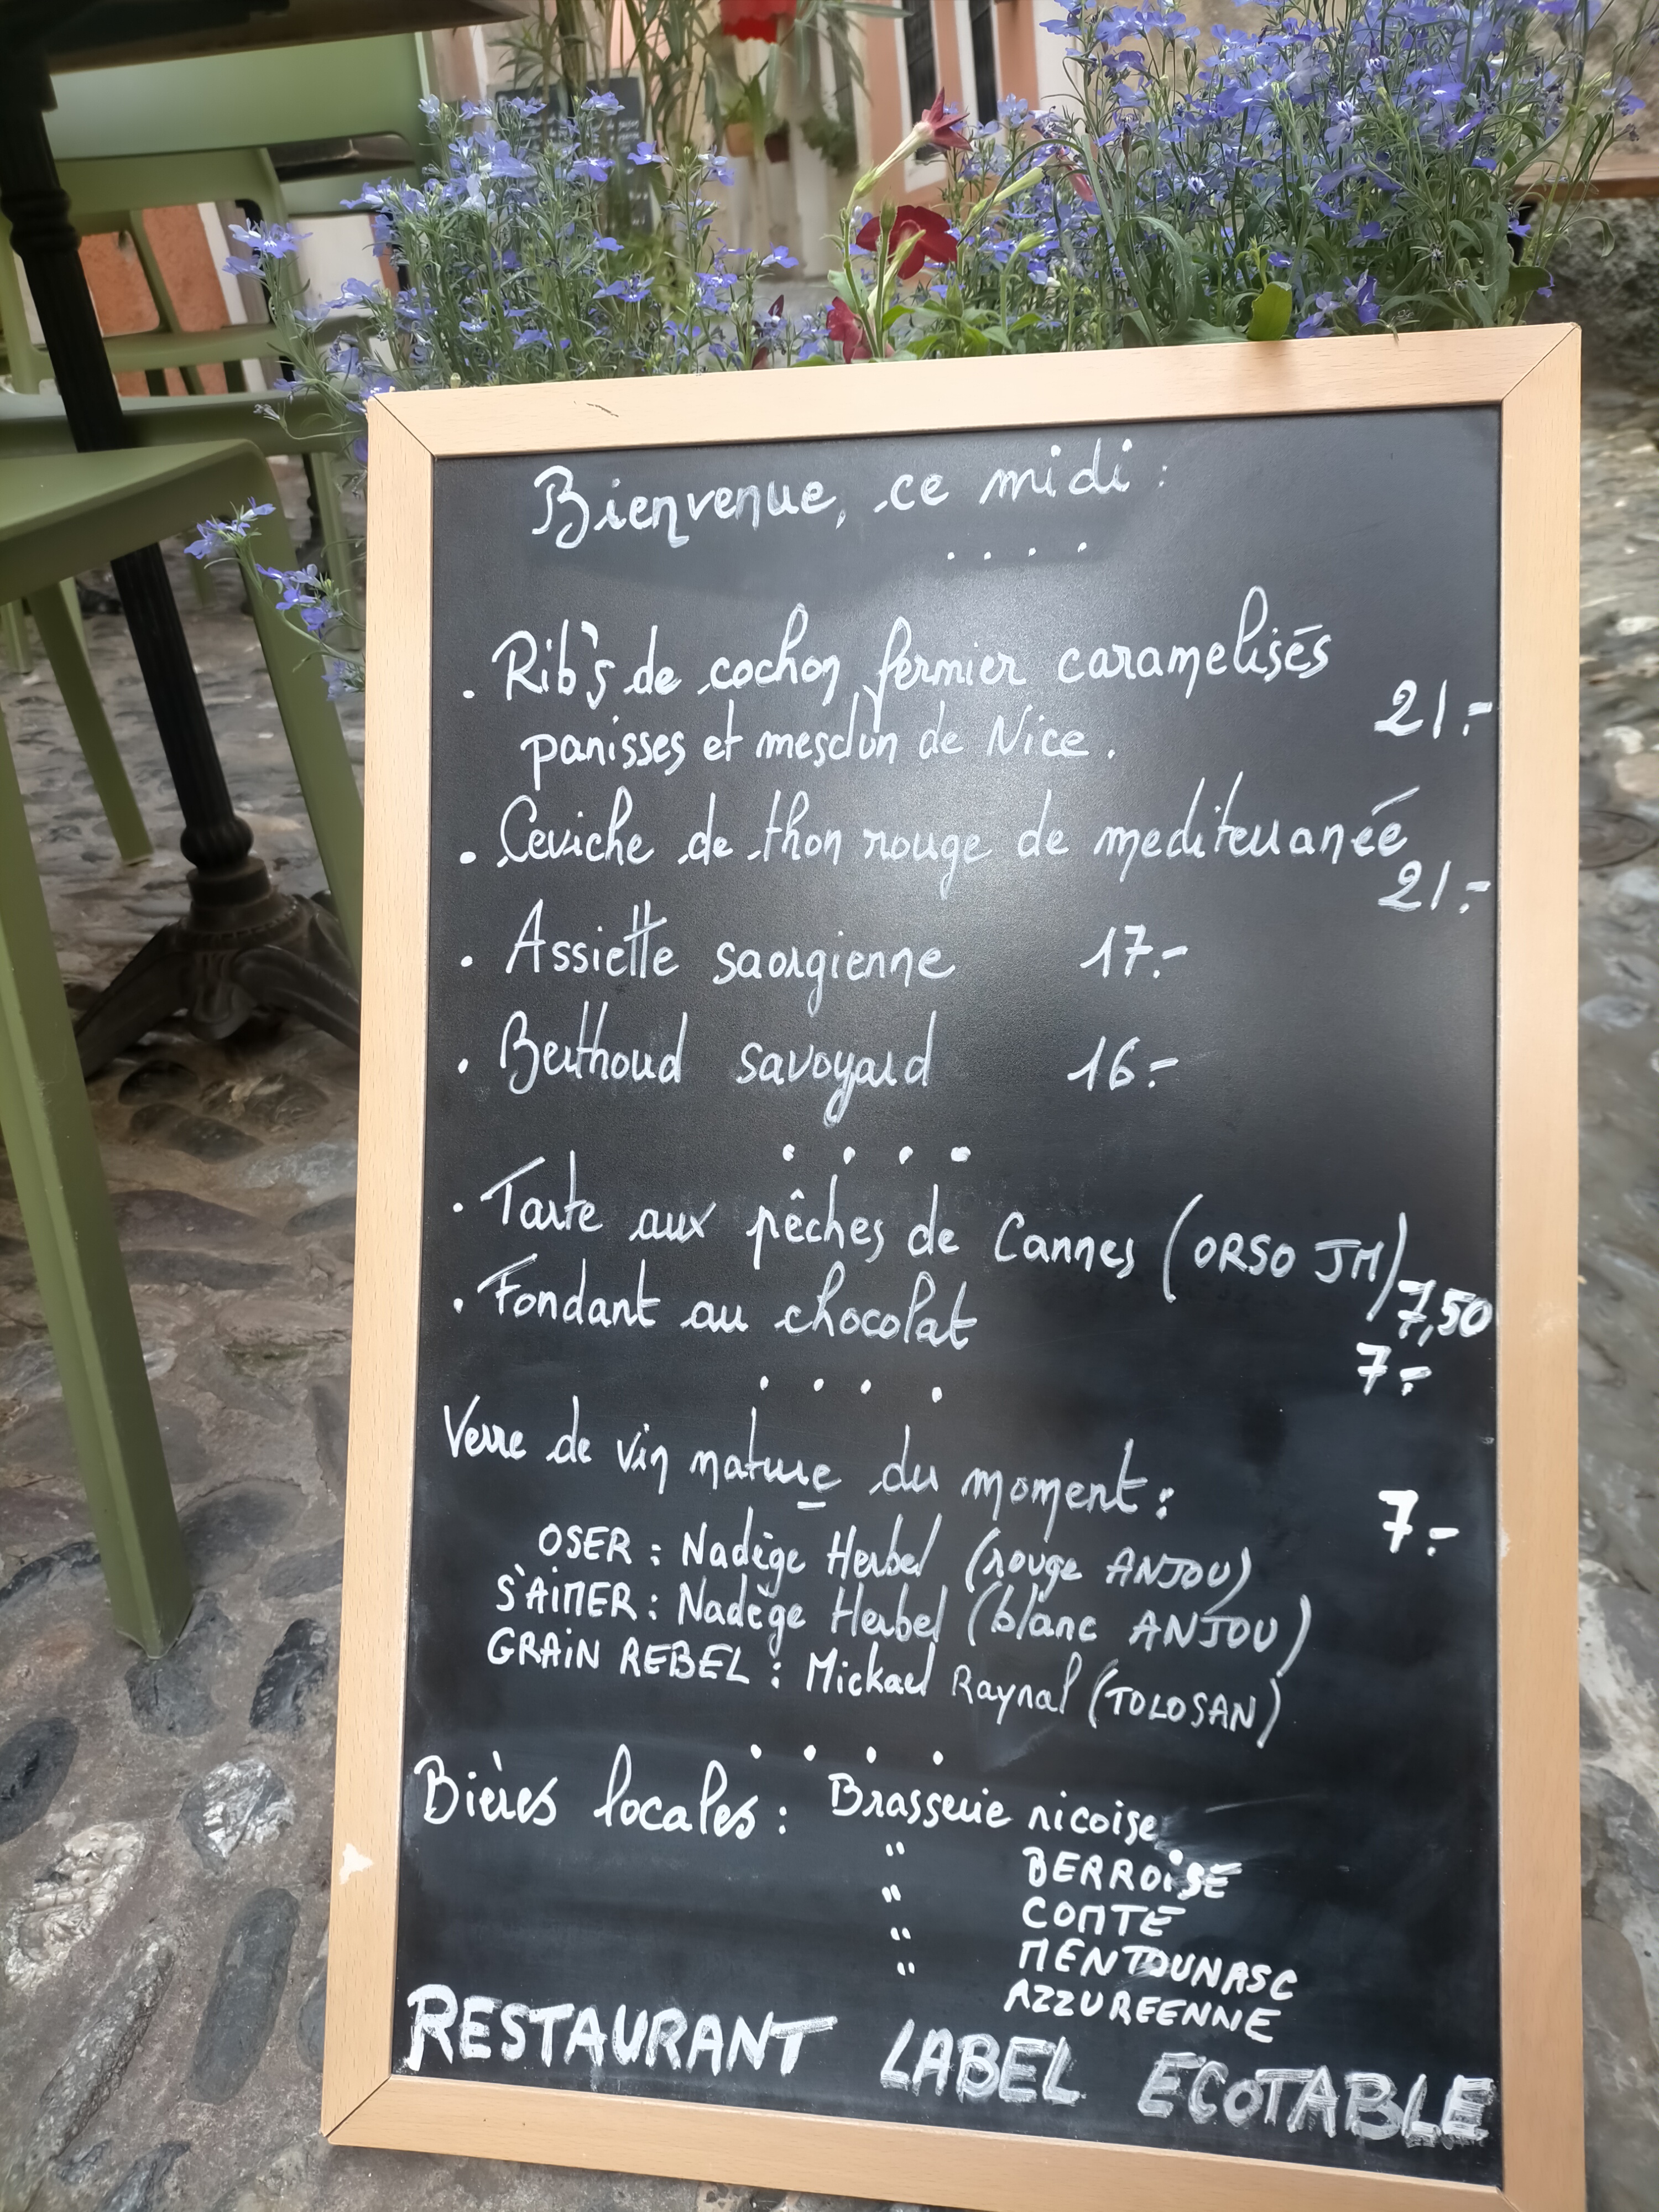 Bienvenue, ce midi :
. Rib's de cochon fermier caramelisés
panisses et mesclun de Nice . 21.-
. Ceviche de thon rouge de mediterranée
21.-
. Assiette saorgienne 17.-
. Berthoud savoyard 16.-
. Tarte aux pêches de Cannes (ORSO JM) 7,50
. Fondant au chocolat
7.-
Verre de vin nature du moment : 7.-
OSER : Nadège Herbel (rouge ANJOU)
S'AIMER : Nadège Herbel (blanc ANJOU)
GRAIN REBEL : Mickael Raynal (TOLOSAN)
Bières locales : Brasserie nicoise
" BERROISE
" COMTE
" MENTOUNASC
" AZZUREENNE
RESTAURANT LABEL ECOTABLE